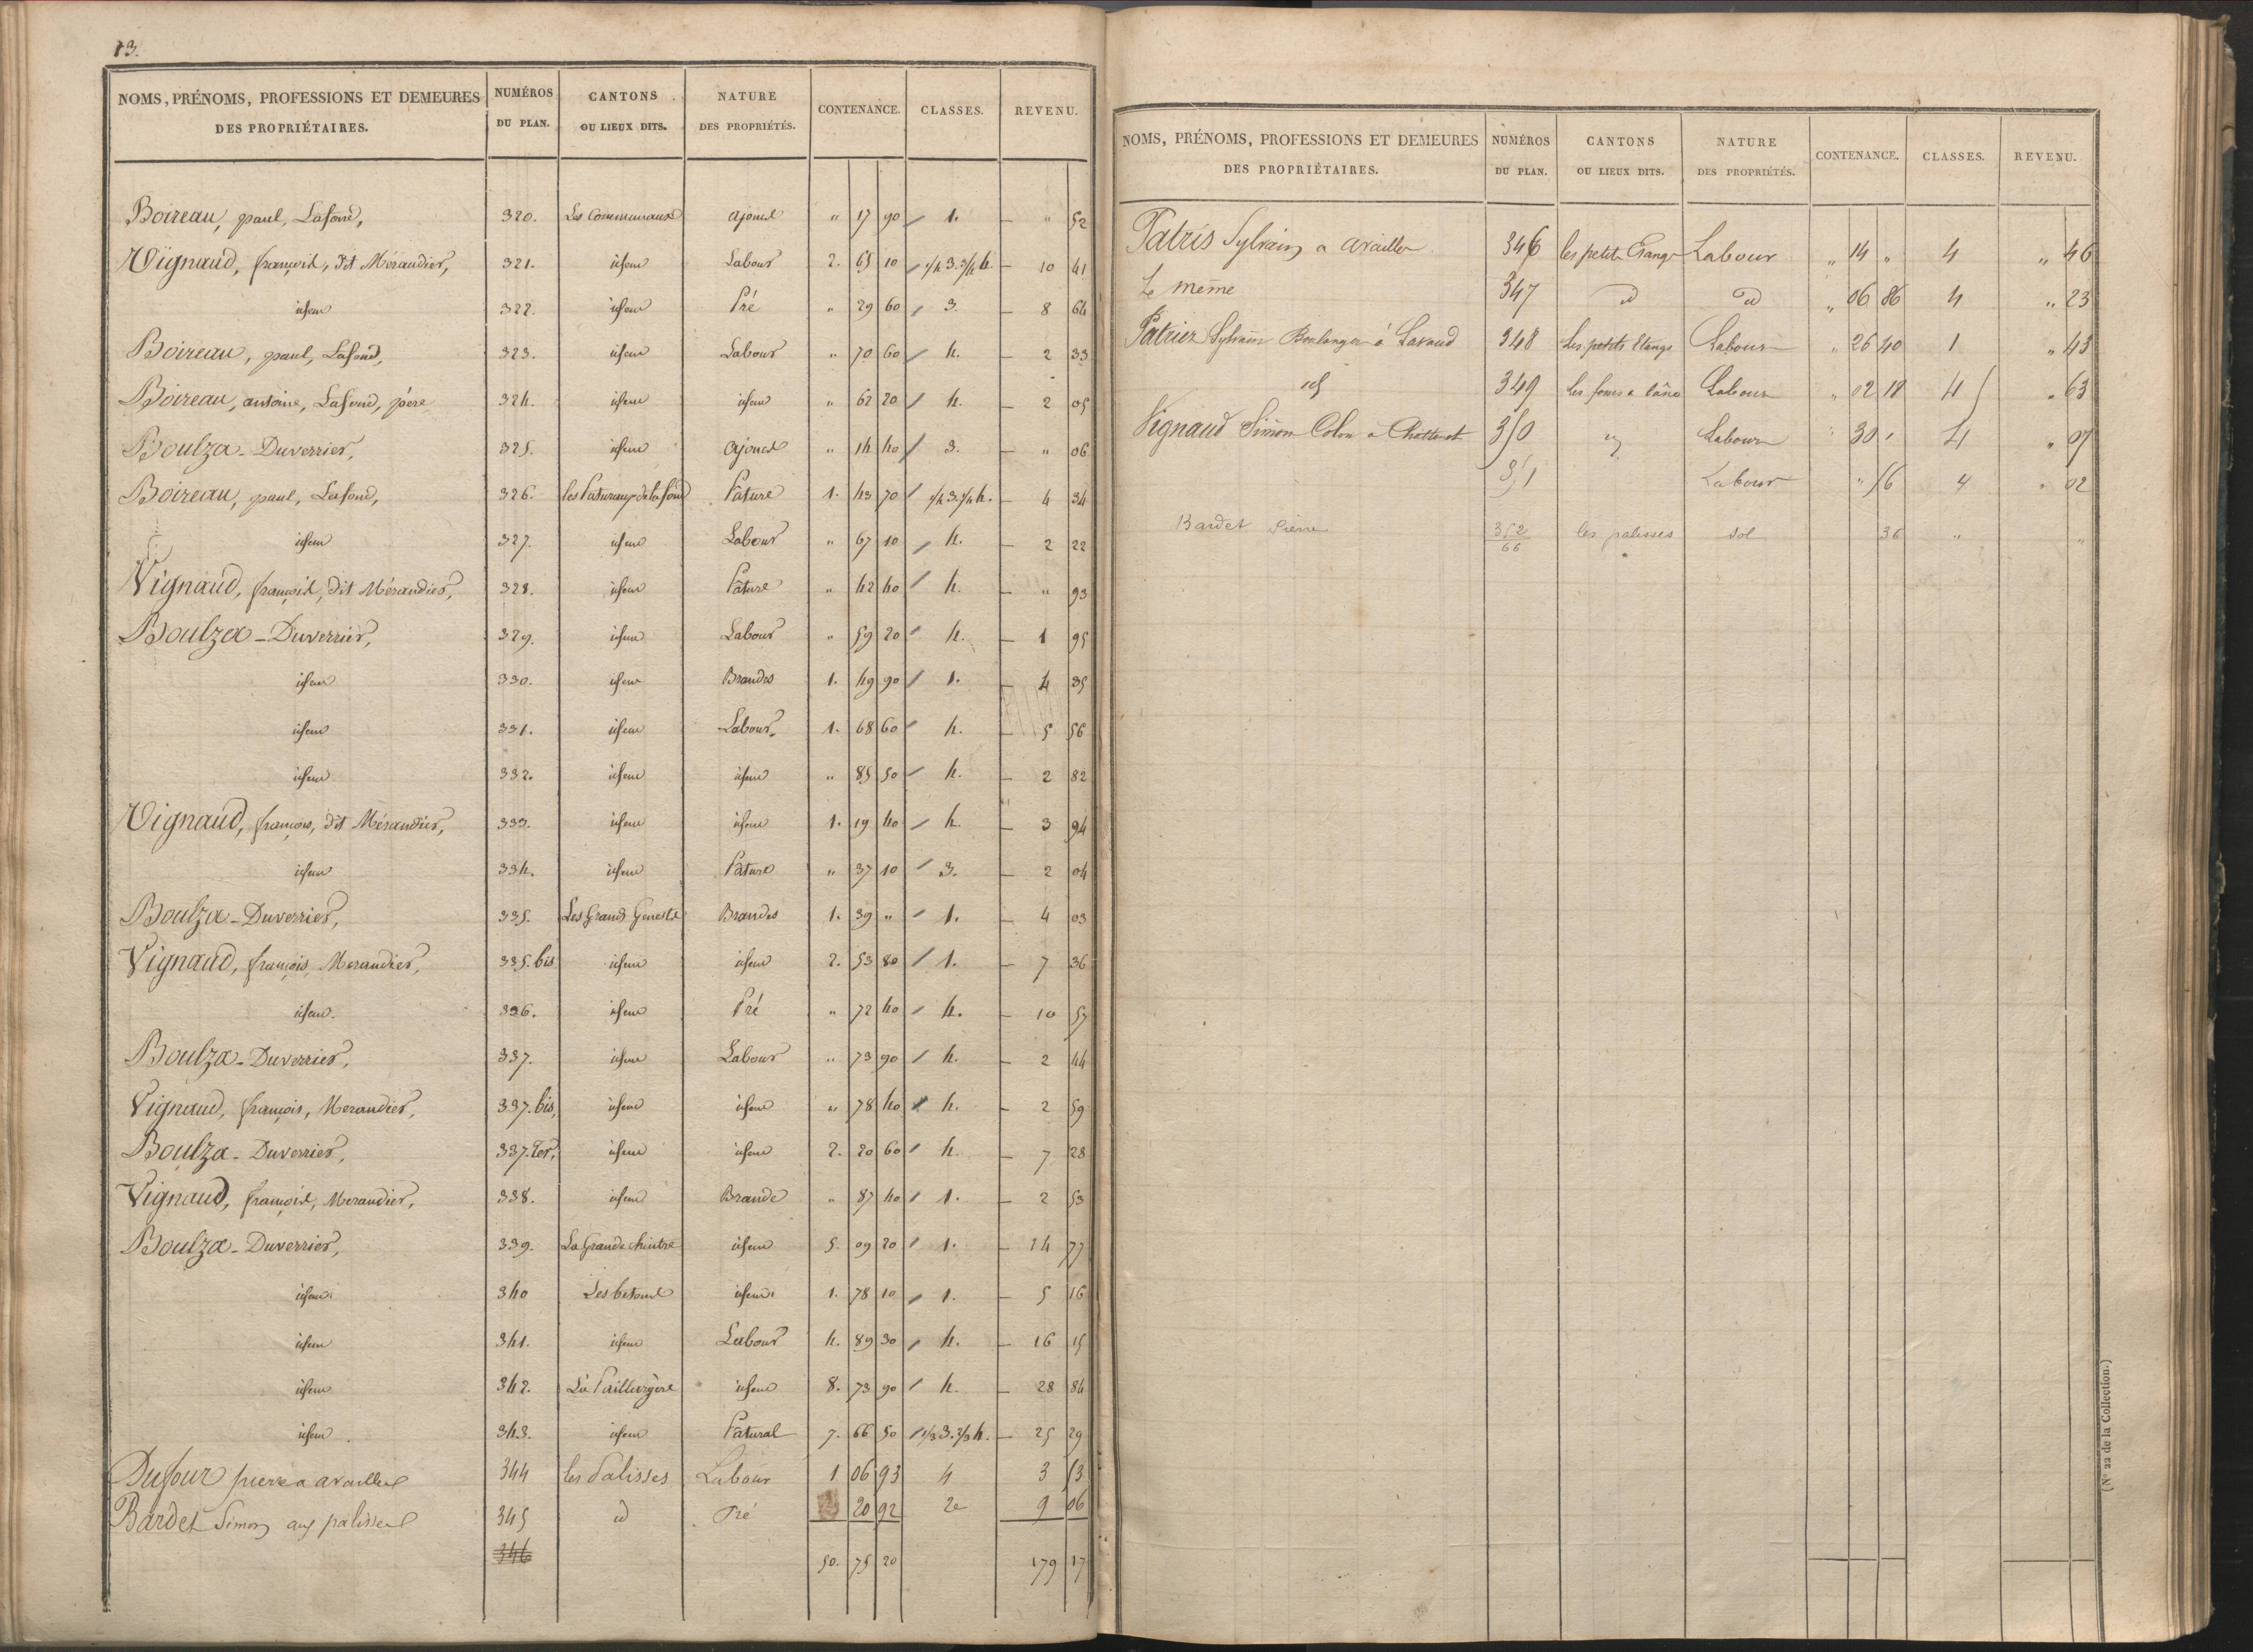 13.
NOMS, PRÉNOMS, PROFESSIONS ET DEMEURES DES PROPRIÉTAIRES. NUMÉROS DU PLAN. CANTONS OU LIEUX DITS. NATURE DES PROPRIÉTÉS. CONTENANCE. CLASSES. REVENU.
Boireau, paul, Lafond, 320. Les Communaux ajonct " 17 90 / 1. — " 52
Vignaud, françois, dit Mérandier, 321. idem Labour 2. 65 10 / 1/4 3. 3/4 4. — 10 41
idem 322. idem Pré " 29 60 / 3. — 8 64
Boireau, paul, Lafond, 323. idem Labour " 70 60 / 4. — 2 33
Boireau, antoine, Lafond, père 324. idem idem " 62 20 / 4. — 2 05
Boulza-Duverrier, 325. idem ajonct " 14 40 / 3. — " 06
Boireau, paul, Lafond, 326. les Paturaux de la fond Pature 1. 43 70 / 1/4 3. 3/4 4. — 4 34
idem 327. idem Labour " 67 10 / 4. — 2 22
Vignaud, françois, dit Mérandier, 328. idem Pâture " 42 40 / 4. — " 93
Boulza-Duverrier, 329. idem Labour " 59 20 / 4. — 1 95
idem 330. idem Brandes 1. 49 90 / 1. — 4 35
idem 331. idem Labour. 1. 68 60 / 4. — 5 56
idem 332. idem idem " 85 50 / 4. — 2 82
Vignaud, françois, dit Mérandier, 333. idem idem 1. 19 40 / 4. — 3 94
idem 334. idem Pâture " 37 10 / 3. — 2 04
Boulza-Duverrier, 335. Les Grands Genests Brandes 1. 39 " / 1. — 4 03
Vignaud, françois, Merandier, 335. bis idem idem 2. 53 80 / 1. — 7 36
idem. 336. idem Pré " 72 40 / 4. — 10 57
Boulza-Duverrier, 337. idem Labour " 73 90 / 4. — 2 44
Vignaud, françois, Merandier, 337. bis, idem idem " 78 40 / 4. — 2 59
Boulza-Duverrier, 337. ter, idem idem 2. 20 60 / 4. — 7 28
Vignaud, françois, Merandier, 338. idem Brande " 87 40 / 1. — 2 53
Boulza-Duverrier, 339. La Grande Chintre idem 5. 09 20 / 1. — 14 77
idem 340 Les betoux idem 1. 78 10 / 1. — 5 16
idem 341. idem Labour 4. 89 30 / 4. — 16 15
idem 342. La Paillargère idem 8. 73 90 / 4. — 28 84
idem 343. idem Patural 7. 66 50 / 1/3 3. 2/3 4. — 25 29
Dufour pierre a availles 344 les Palisses Labour 1 06 93 4 3 53
Bardet Simon aux palisses 345 id Pré 20 92 2e 9 06
346
50. 75 20 179 17
NOMS, PRÉNOMS, PROFESSIONS ET DEMEURES DES PROPRIÉTAIRES. NUMÉROS DU PLAN. CANTONS OU LIEUX DITS. NATURE DES PROPRIÉTÉS. CONTENANCE. CLASSES. REVENU.
Patris Sylvain a availles 346 les petits Etangs Labour " 14 " 4 " 46
Le même 347 d° d° " 06 86 4 " 23
Patrier Sylvain Boulanger à Lavaud 348 Les petits Etangs Labour " 26 40 1 " 43
id 349 Labour " 02 18 4 " 63
Vignaud Simon Colon a 350 Labour " 30 " 4 " 07
351 Labour " 56 4 " 02
Bardet Pierre 352/66 les palisses Sol 36 " "
(N° 22 de la Collection.)